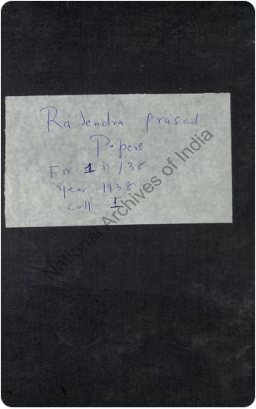 Rajendra Prasad
Papers
Year 1938
Coll I
National Archives of India